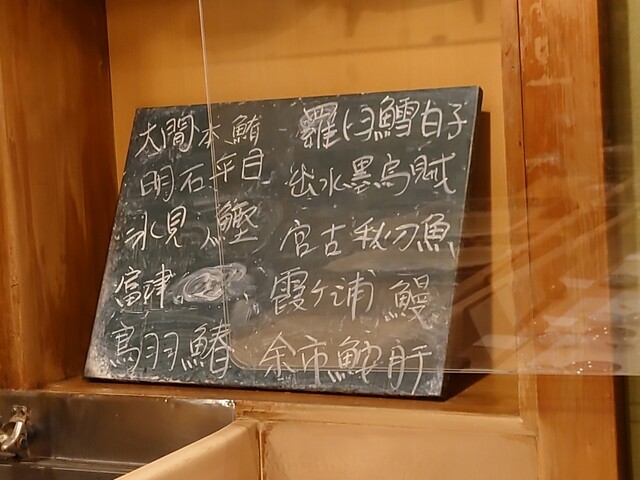 大間本鮪
明石平目
氷見 鰹
富津
鳥羽鰆
羅臼鱈白子
出水墨烏賊
宮古秋刀魚
霞ヶ浦 鰻
余市鮟肝